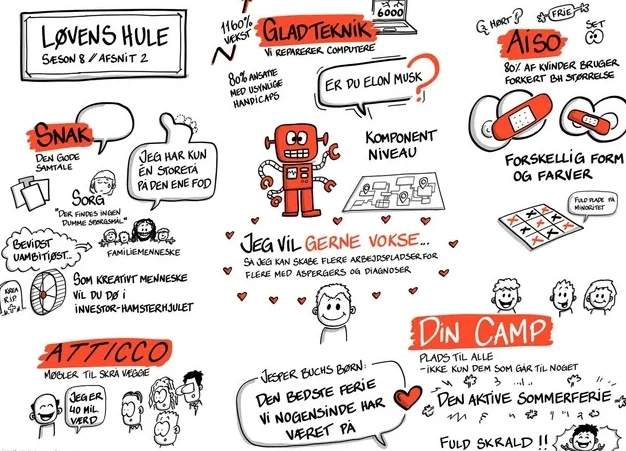 LØVENS HULE
SÆSON 8 // AFSNIT 2
SNAK
DEN GODE
SAMTALE
JEG HAR KUN
ÉN STORETÅ
PÅ DEN ENE FOD
SORG
"DER FINDES INGEN
DUMME SPØRGSMÅL"
BEVIDST
UAMBITIØST...
FAMILIEMENNESKE
KREA
R.I.P.
SOM KREATIVT MENNESKE
VIL DU DØ I
INVESTOR-HAMSTERHJULET
ATTICCO
MØBLER TIL SKRÅ VÆGGE
JEG ER
40 MIL.
VÆRD
1160%
VÆKST
GLADTEKNIK
VI REPARERER COMPUTERE
6000
80% ANSATTE
MED USYNLIGE
HANDICAPS
ER DU ELON MUSK?
KOMPONENT
NIVEAU
JEG VIL GERNE VOKSE...
SÅ JEG KAN SKABE FLERE ARBEJDSPLADSER FOR
FLERE MED ASPERGERS OG DIAGNOSER
JESPER BUCHS BØRN:
DEN BEDSTE FERIE
VI NOGENSINDE HAR
VÆRET PÅ
HØRT?
FRIE
SET
AISO
80% AF KVINDER BRUGER
FORKERT BH STØRRELSE
FORSKELLIG FORM
OG FARVER
FULD PLADE PÅ
MINORITET
DIN CAMP
PLADS TIL ALLE
- IKKE KUN DEM SOM GÅR TIL NOGET
DEN AKTIVE SOMMERFERIE
FULD SKRALD !!